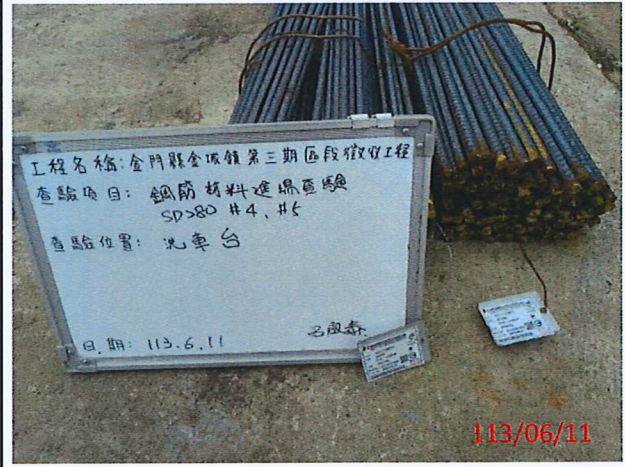 工程名稱:金門縣金城鎮第三期區段徵收工程
查驗項目: 鋼筋材料進場查驗
SD280 #4、#5
查驗位置: 洗車台
日期: 113.6.11
113/06/11